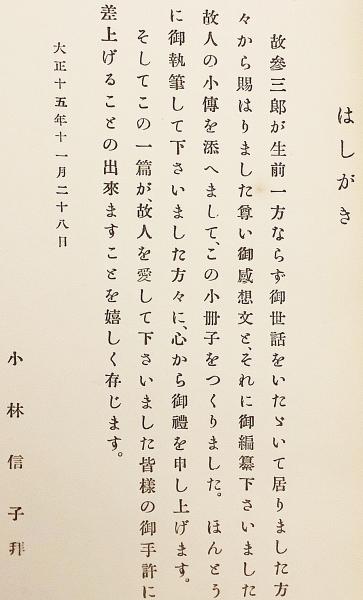 はしがき
故參三郎が生前一方ならず御世話をいたゞいて居りました方
々から賜はりました尊い御感想文と、それに御編纂下さいました
故人の小傳を添へまして、この小册子をつくりました。ほんとう
に御執筆して下さいました方々に、心から御禮を申し上げます。
そしてこの一篇が、故人を愛して下さいました皆樣の御手許に
差上げることの出來ますことを嬉しく存じます。
大正十五年十一月二十八日
小林信子拜